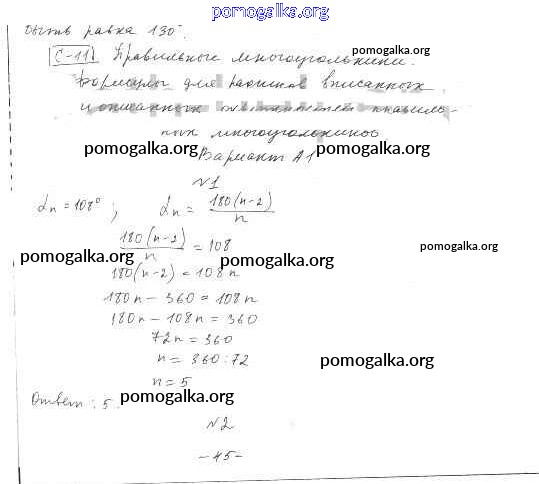 pomogalka.org
быть равна 130°.
С-11. Правильные многоугольники.
pomogalka.org
Формулы для радиусов вписанных
и описанных правиль-
ных многоугольников
pomogalka.org pomogalka.org
Вариант А1
№1
αn = 108°; αn = 180(n-2)/n
180(n-2)/n = 108
pomogalka.org
pomogalka.org pomogalka.org
180(n-2) = 108n
180n - 360 = 108n
180n - 108n = 360
72n = 360
n = 360 : 72
pomogalka.org
n = 5
Ответ: 5.
pomogalka.org
№2
-45-